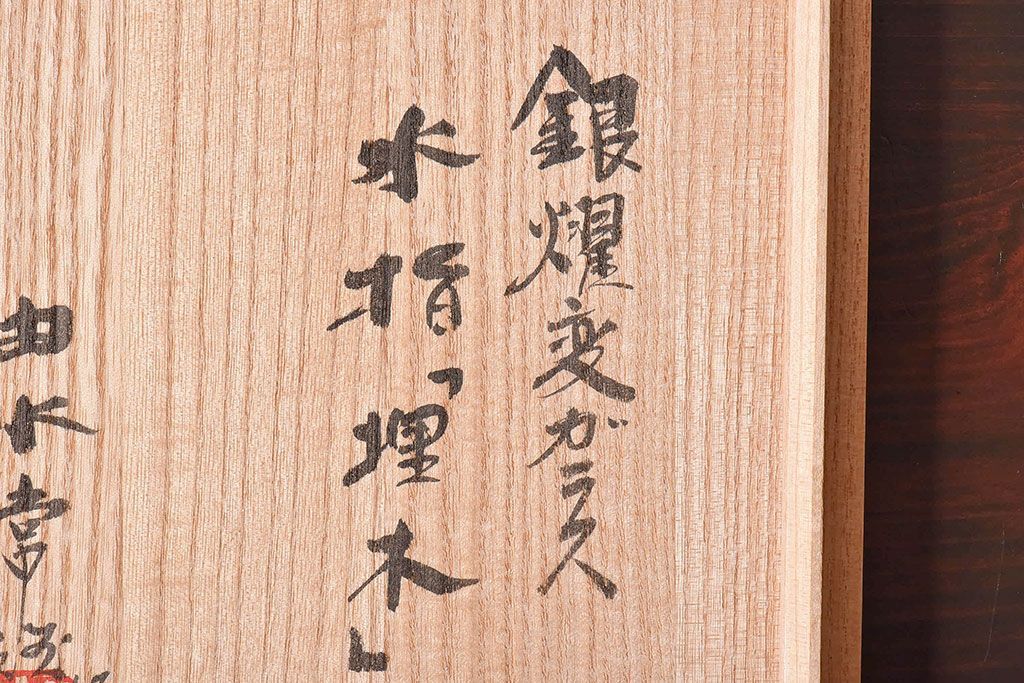 銀燿変ガラス
水指「埋木」
由水常